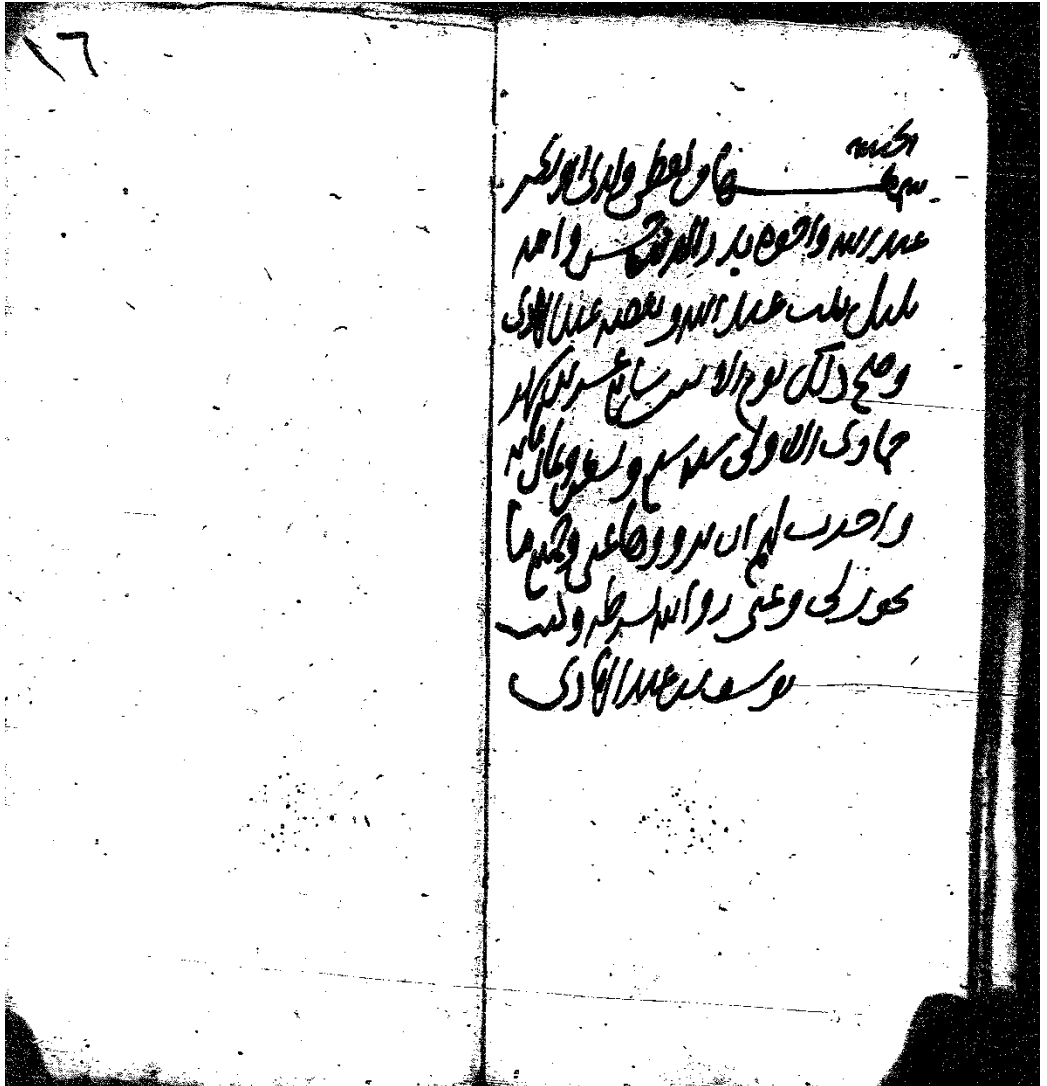 ١٦
الحمد لله
سمعها من لفظي ولدي ابو بكر
عبد الله واخوه بدر الدين حسن وامه
بلبل بنت عبد الله وبعضه عبد الهادي
وصح ذلك يوم الاثنين سابع عشرين شهر
جمادى الاولى سنة سبع وتسعين وثمان مائة
واجزت لهم ان يرووها عني وجميع ما
يجوز لي وعني روايته بشرطه وكتب
يوسف بن عبد الهادي